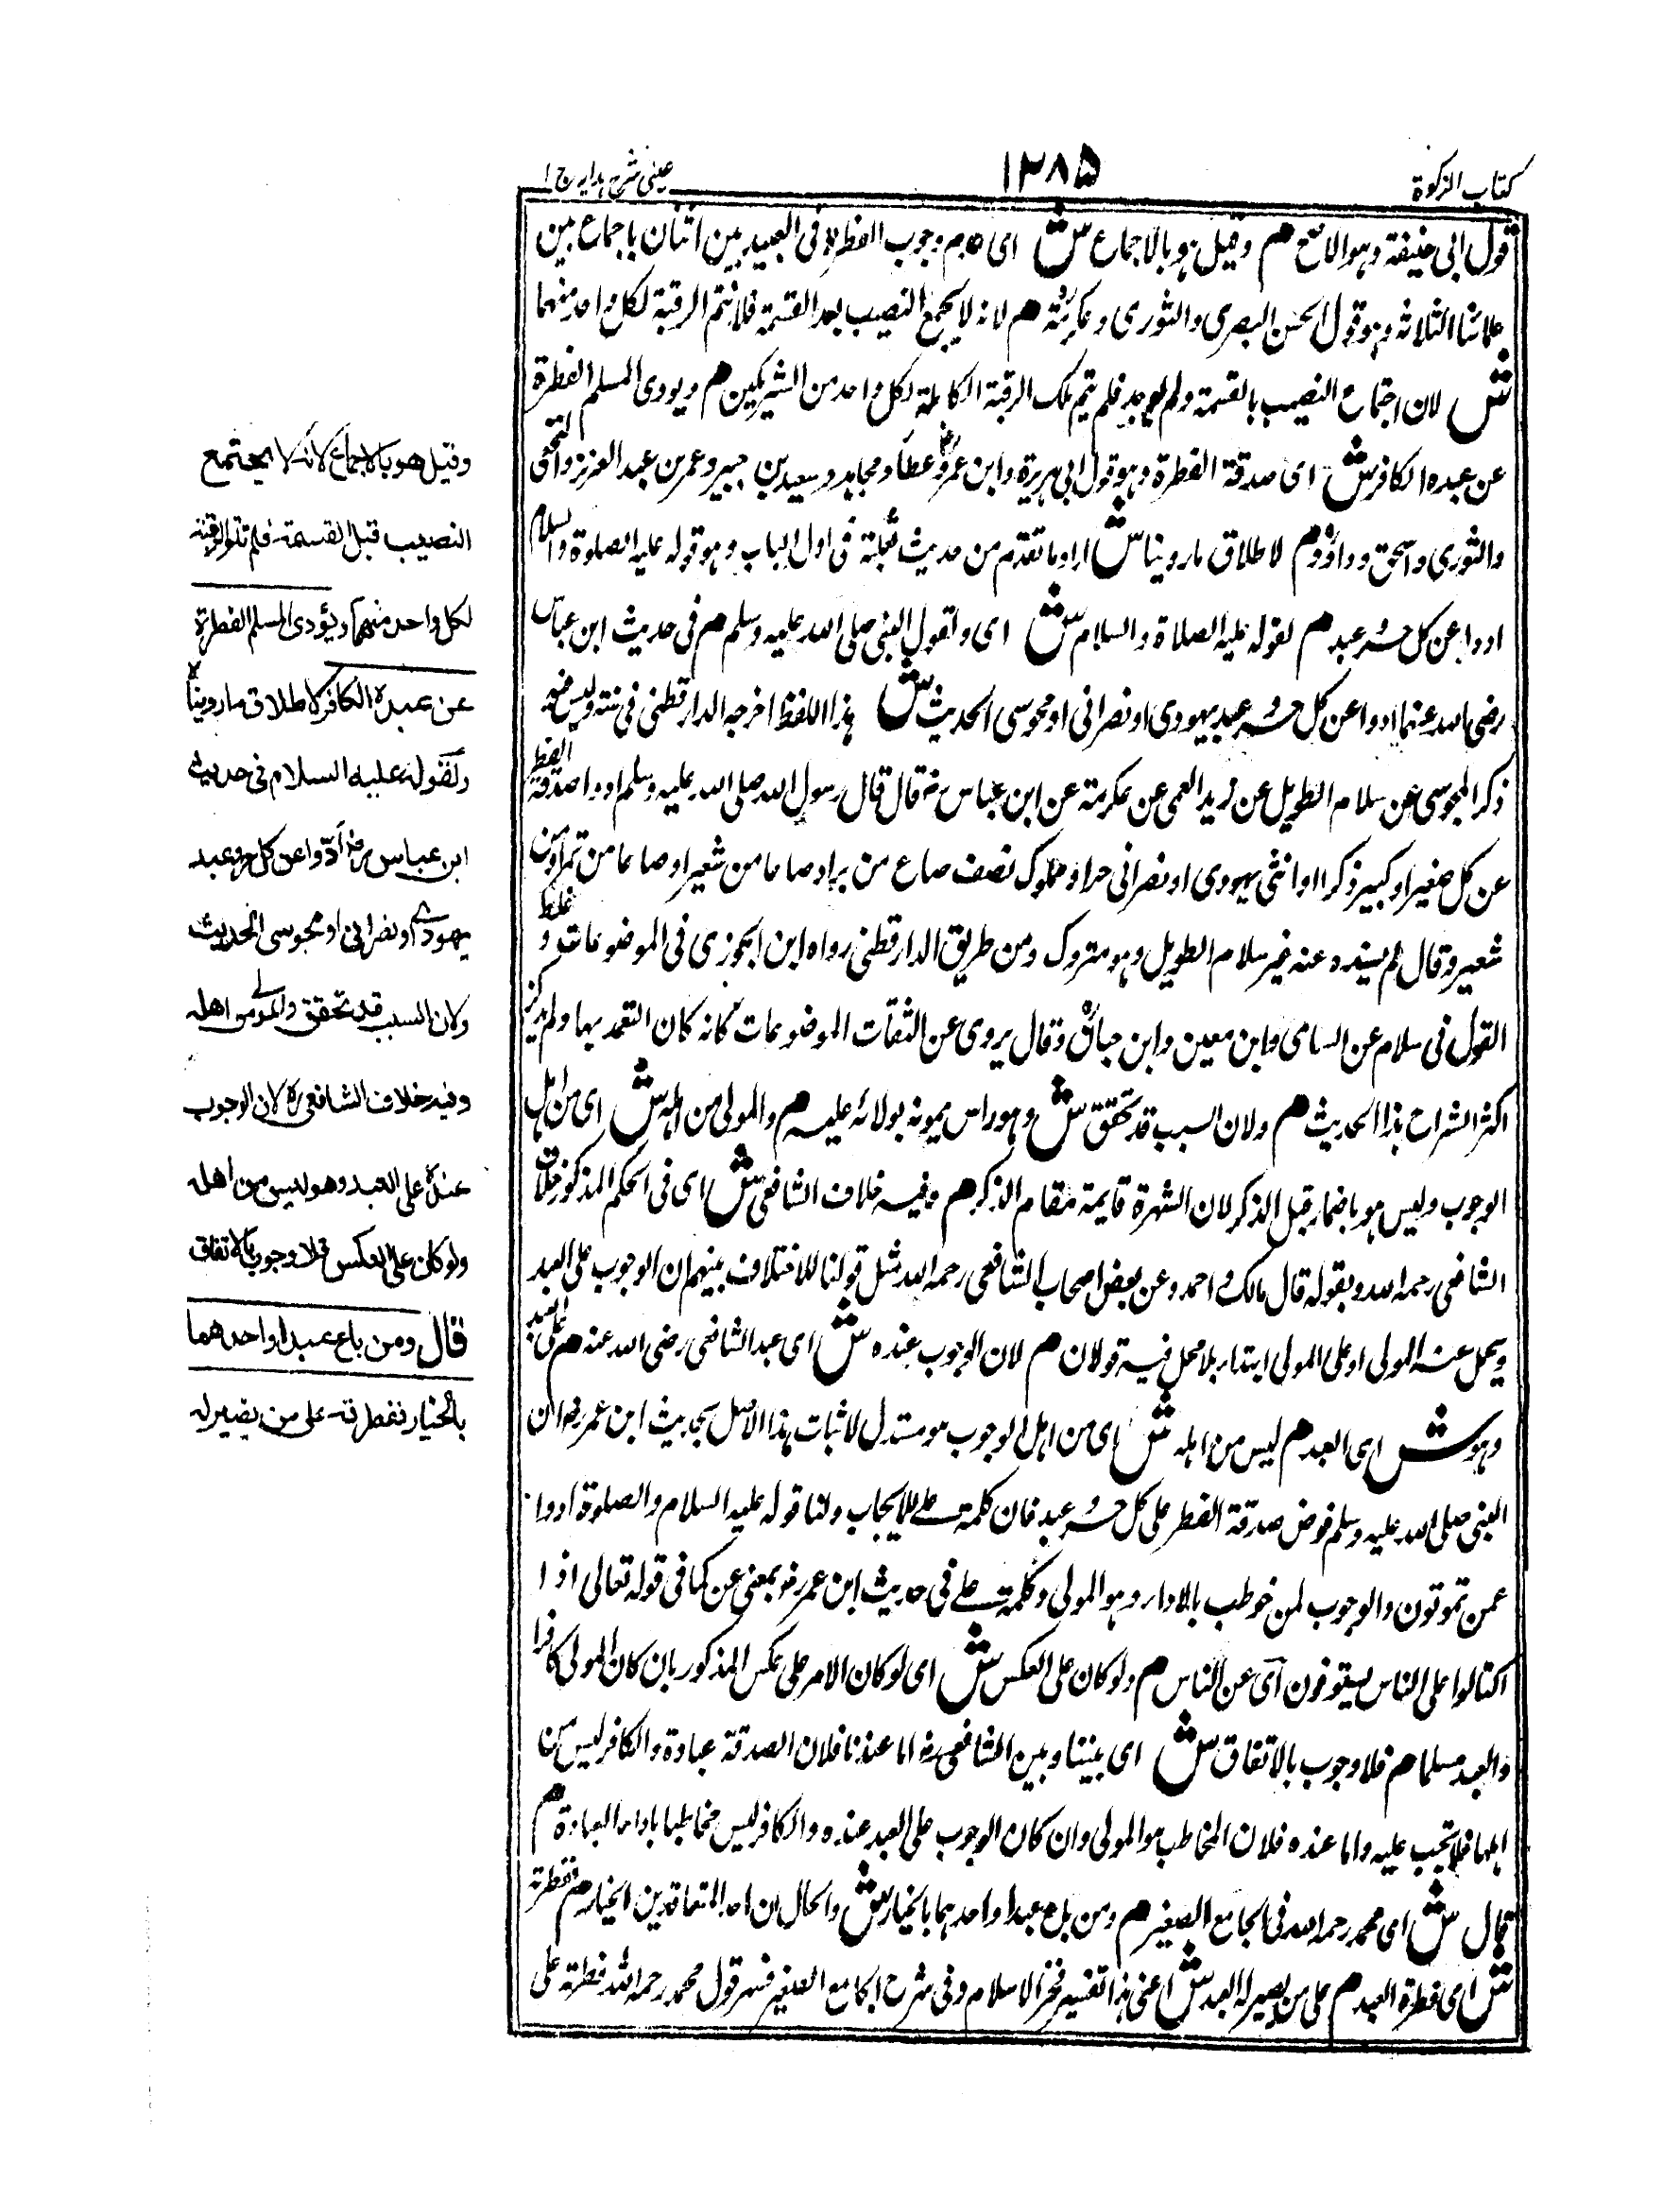 كتاب الزكوة
١٢٨٥
عینی شرح ہدایہ ج ١
قول ابی حنیفۃ وہو الاصح ھم وقیل ہو بالاجماع ش ای عدم وجوب الفطرۃ فی العبید بین اثنان باجماع بین
علمائنا الثلاثۃ وہو قول الحسن البصری والثوری وعکرمۃ ھم لانہ لا یجمع النصیب بعد القسمۃ فلا تتم الرقبۃ لکل واحد منهما
ش لان اجتماع النصیب بالقسمۃ ولم یوجد فلم یتم ملک الرقبۃ الکاملۃ لکل واحد من الشریکین ھم ویودی المسلم الفطرۃ
عن عبدہ الکافر ش ای صدقۃ الفطرۃ وہو قول ابی ہریرۃ وابن عمر وعطاء ومجاہد وسعید بن جبیر وعمر بن عبد العزیز والنخعی
والثوری واسحق وداؤد ھم لاطلاق ما روینا ش اراد ما تقدم من حدیث ثعلبۃ فی اول الباب وہو قولہ علیہ الصلوۃ والسلام
ادوا عن کل حر وعبد ھم لقولہ علیہ الصلاۃ والسلام ش ای ولقول النبی صلی اللہ علیہ وسلم ھم فی حدیث ابن عباس
رضی اللہ عنہما ادوا عن کل حر وعبد یہودی او نصرانی او مجوسی الحدیث ش ہذا اللفظ اخرجہ الدارقطنی فی سننہ ولیس فیہ
ذکر المجوسی عن سلام الطویل عن زید العمی عن عکرمۃ عن ابن عباس رض قال قال رسول اللہ صلی اللہ علیہ وسلم ادوا صدقۃ الفطر
عن کل صغیر او کبیر ذکر او انثی یہودی او نصرانی حر او مملوک نصف صاع من بر او صاعا من شعیر او صاعا من تمر او من
شعیر وقال لم یسندہ عنہ غیر سلام الطویل وہو متروک ومن طریق الدارقطنی رواہ ابن الجوزی فی الموضوعات وغلط
القول فی سلام عن النسائی وابن معین وابن حبان وقال یروی عن الثقات الموضوعات کانہ کان التعمد بہا ولم یذکر
اکثر الشراح ہذا الحدیث ھم ولان السبب قد تحقق ش وہو راس یمونہ بولائہ علیہ ھم والمولی من اہلہ ش ای من اہل
الوجوب ولیس ہو باضمار قبل الذکر لان الشہرۃ قایمۃ مقام الذکر ھم وفیہ خلاف الشافعی ش ای فی الحکم المذکور خلاف
الشافعی رحمہ اللہ وبقولہ قال مالک واحمد وعن بعض اصحاب الشافعی رحمہ اللہ مثل قولنا للاختلاف بینہم ان الوجوب علی العبد
ویتحمل عنہ المولی او علی المولی ابتداء بلا تحمل فیہ قولان ھم لان الوجوب عندہ ش ای عند الشافعی رضی اللہ عنہ ھم علی العبد
وہو ش ای العبد ھم لیس من اہلہ ش ای من اہل الوجوب ھو مستدل لاثبات ہذا الاصل بحدیث ابن عمر رض ان
النبی صلی اللہ علیہ وسلم فرض صدقۃ الفطر علی کل حر وعبد فان کلمۃ علی للایجاب ولنا قولہ علیہ السلام والصلوۃ ادوا
عمن تمونون والوجوب لمن خوطب بالاداء وہو المولی وکلمۃ علی فی حدیث ابن عمر رض بمعنی عن کما فی قولہ تعالی اذا
اکتالوا علی الناس یستوفون ای عن الناس ھم ولو کان علی العکس ش ای لو کان الامر علی عکس المذکور بان کان المولی کافرا
والعبد مسلما ھم فلا وجوب بالاتفاق ش ای بیننا وبین الشافعی رض اما عندنا فلان الصدقۃ عبادۃ والکافر لیس من
اہلہا فلا تجب علیہ واما عندہ فلان المخاطب ھو المولی وان کان الوجوب علی العبد عندہ والکافر لیس مخاطبا باداء العبادۃ ھم
قال ش ای محمد رحمہ اللہ فی الجامع الصغیر ھم ومن باع عبدا واحدہما بالخیار ش والحال ان احد المتعاقدین بالخیار ھم ففطرتہ
ش ای فطرۃ العبد ھم علی من یصیر لہ العبد ش اعنی ہذا تفسیر فخر الاسلام وفی شرح الجامع الصغیر فسر قول محمد رحمہ اللہ ففطرتہ علی
وقيل هو بالاجماع لانه لا يجتمع
النصيب قبل القسمة فلم تتم الرقبة
لكل واحد منهما ويؤدى المسلم الفطرة
عن عبده الكافر لاطلاق ما روينا
ولقوله عليه السلام فى حديث
ابن عباس رض ادّوا عن كل حر وعبد
يهودى او نصرانى او مجوسى الحديث
ولان السبب قد تحقق والمولى من اهله
وفيه خلاف الشافعى ره لان الوجوب
عنده على العبد وهو ليس من اهله
ولو كان على العكس فلا وجوب بالاتفاق
قال ومن باع عبدا واحدهما
بالخيار ففطرته على من يصير له